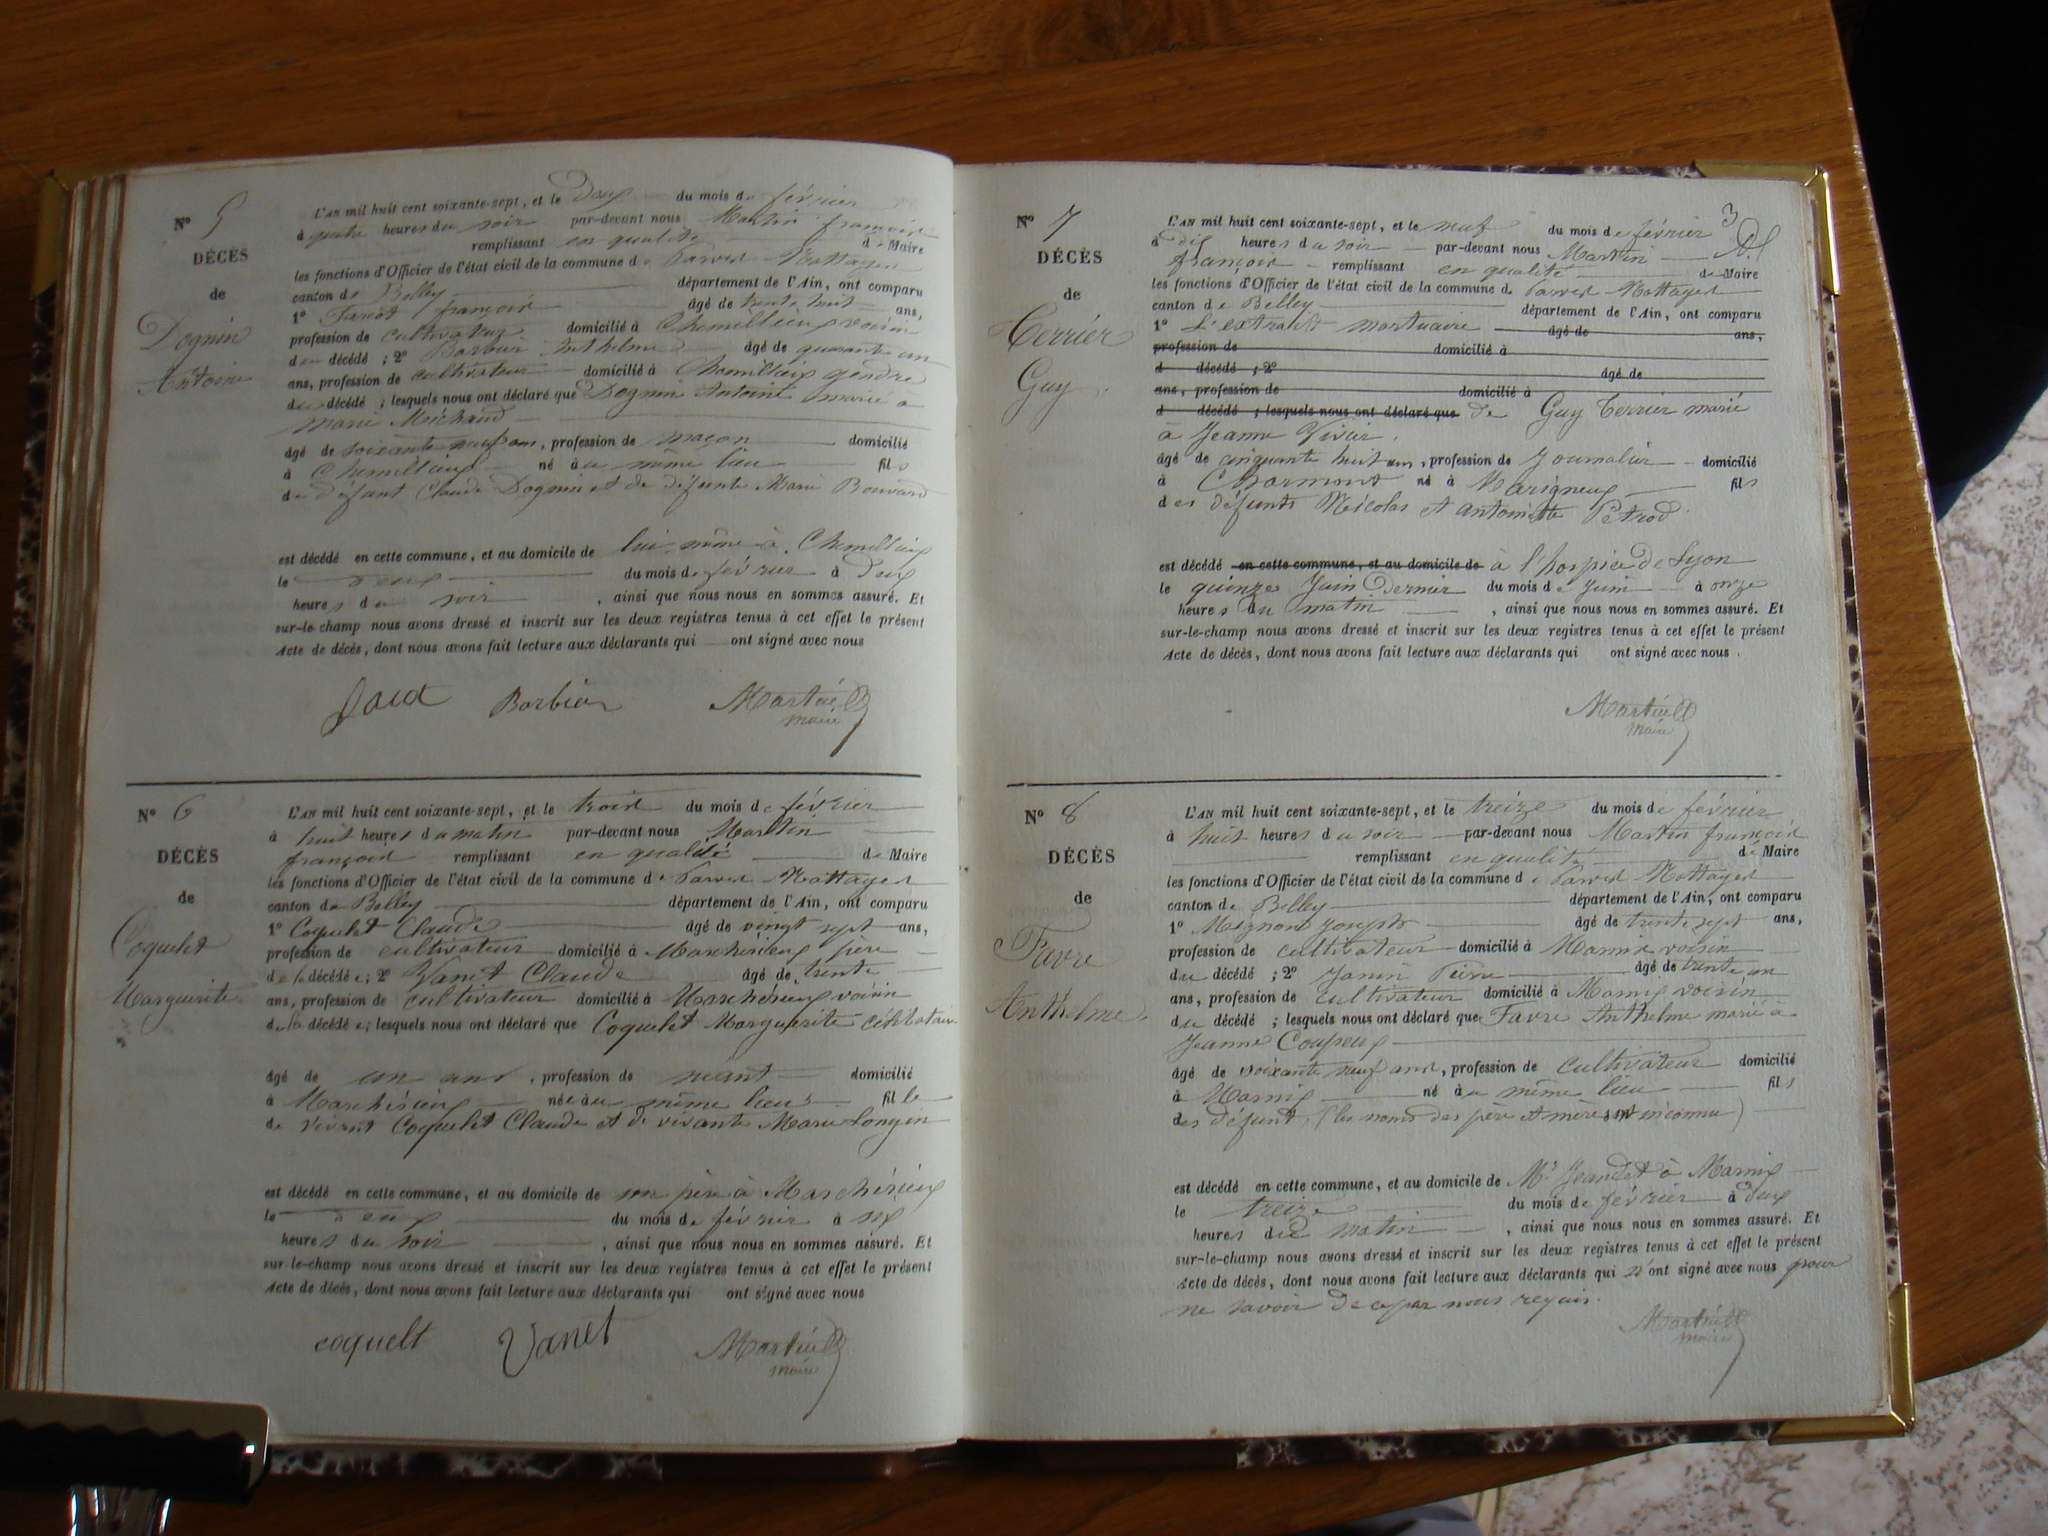 N° 5
DÉCÈS
de
Dognin
Antoine
L'AN mil huit cent soixante-sept, et le Deux du mois de février
à quatre heures du soir par-devant nous Martin françois
remplissant en qualité de Maire
les fonctions d'Officier de l'état civil de la commune de Parves Nattages
canton de Belley département de l'Ain, ont comparu
1° françois âgé de trente huit ans,
profession de cultivateur domicilié à Chemillieu voisin
du décédé ; 2° Barbier Anthelme âgé de quarante un
ans, profession de cultivateur domicilié à Chemillieu gendre
du décédé ; lesquels nous ont déclaré que Dognin Antoine marié à
Marie Michaud
âgé de soixante neuf ans, profession de maçon domicilié
à Chemillieu né à au même lieu fils
de défunt Claude Dognin et de défunte Marie Bouvard
est décédé en cette commune, et au domicile de lui-même à Chemillieu
le deux du mois de février à deux
heures du soir , ainsi que nous nous en sommes assuré. Et
sur-le-champ nous avons dressé et inscrit sur les deux registres tenus à cet effet le présent
Acte de décès, dont nous avons fait lecture aux déclarants qui ont signé avec nous
Barbier Martin
maire
N° 6
DÉCÈS
de
Coquelet
Marguerite
L'AN mil huit cent soixante-sept, et le trois du mois de février
à huit heures du matin par-devant nous Martin
françois remplissant en qualité de Maire
les fonctions d'Officier de l'état civil de la commune de Parves Nattages
canton de Belley département de l'Ain, ont comparu
1° Coquelet Claude âgé de vingt sept ans,
profession de cultivateur domicilié à Marchérieu père
de la décédée ; 2° Vanet Claude âgé de trente
ans, profession de cultivateur domicilié à Marchérieu voisin
de la décédée ; lesquels nous ont déclaré que Coquelet Marguerite célibataire
âgé de un ans , profession de néant domicilié
à Marchérieu née à au même lieu fille
de vivant Coquelet Claude et de vivante Marie Longin
est décédé en cette commune, et au domicile de son père à Marchérieu
le deux du mois de février à six
heures du soir , ainsi que nous nous en sommes assuré. Et
sur-le-champ nous avons dressé et inscrit sur les deux registres tenus à cet effet le présent
Acte de décès, dont nous avons fait lecture aux déclarants qui ont signé avec nous
coquelt Vanet Martin
maire
3
N° 7
DÉCÈS
de
Terrier
Guy
L'AN mil huit cent soixante-sept, et le neuf du mois de février
à dix heures du soir par-devant nous Martin
françois remplissant en qualité de Maire
les fonctions d'Officier de l'état civil de la commune de Parves Nattages
canton de Belley département de l'Ain, ont comparu
1° L'extrait mortuaire âgé de ans,
profession de domicilié à
d décédé ; 2° âgé de
ans, profession de domicilié à
d décédé ; lesquels nous ont déclaré que de Guy Terrier marié
à Jeanne Vivier.
âgé de cinquante huit ans, profession de Journalier domicilié
à Charmont né à Marigneux fils
des défunts Nicolas et Antoinette Petrod
est décédé en cette commune, et au domicile de à l'hospice de Lyon
le quinze Juin Dernier du mois de Juin à onze
heures du matin , ainsi que nous nous en sommes assuré. Et
sur-le-champ nous avons dressé et inscrit sur les deux registres tenus à cet effet le présent
Acte de décès, dont nous avons fait lecture aux déclarants qui ont signé avec nous.
Martin
maire
N° 8
DÉCÈS
de
Favre
Anthelme
L'AN mil huit cent soixante-sept, et le treize du mois de février
à huit heures du soir par-devant nous Martin françois
remplissant en qualité de Maire
les fonctions d'Officier de l'état civil de la commune de Parves Nattages
canton de Belley département de l'Ain, ont comparu
1° Mignon Joseph âgé de trente sept ans,
profession de cultivateur domicilié à Marnix voisin
du décédé ; 2° Janin Pierre âgé de trente un
ans, profession de cultivateur domicilié à Marnix voisin
du décédé ; lesquels nous ont déclaré que Favre Anthelme marié à
Jeanne Coupeux
âgé de soixante neuf ans, profession de cultivateur domicilié
à Marnix né à au même lieu fils
des défunt (les noms des père et mère sont inconnu)
est décédé en cette commune, et au domicile de Mr Jeandet à Marnix
le treize du mois de février à deux
heures du matin , ainsi que nous nous en sommes assuré. Et
sur-le-champ nous avons dressé et inscrit sur les deux registres tenus à cet effet le présent
Acte de décès, dont nous avons fait lecture aux déclarants qui n'ont signé avec nous pour
ne savoir de ce par nous requis.
Martin
maire